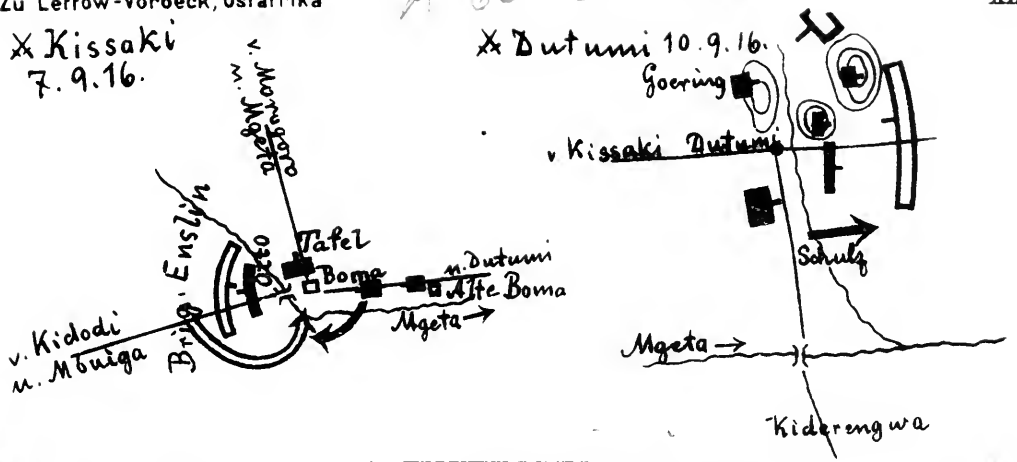 Zu Lettow-Vorbeck, Ostafrika
X Kissaki
7.9.16.
v. Morogoro
u. Mgeta
Brig. Enslin
Otto
Tafel
Boma
n. Dutumi
Alte Boma
Mgeta
v. Kidodi
u. Mbuiga
X Dutumi 10.9.16.
Goering
v Kissaki Dutumi
Schulz
Mgeta
Kiderengwa